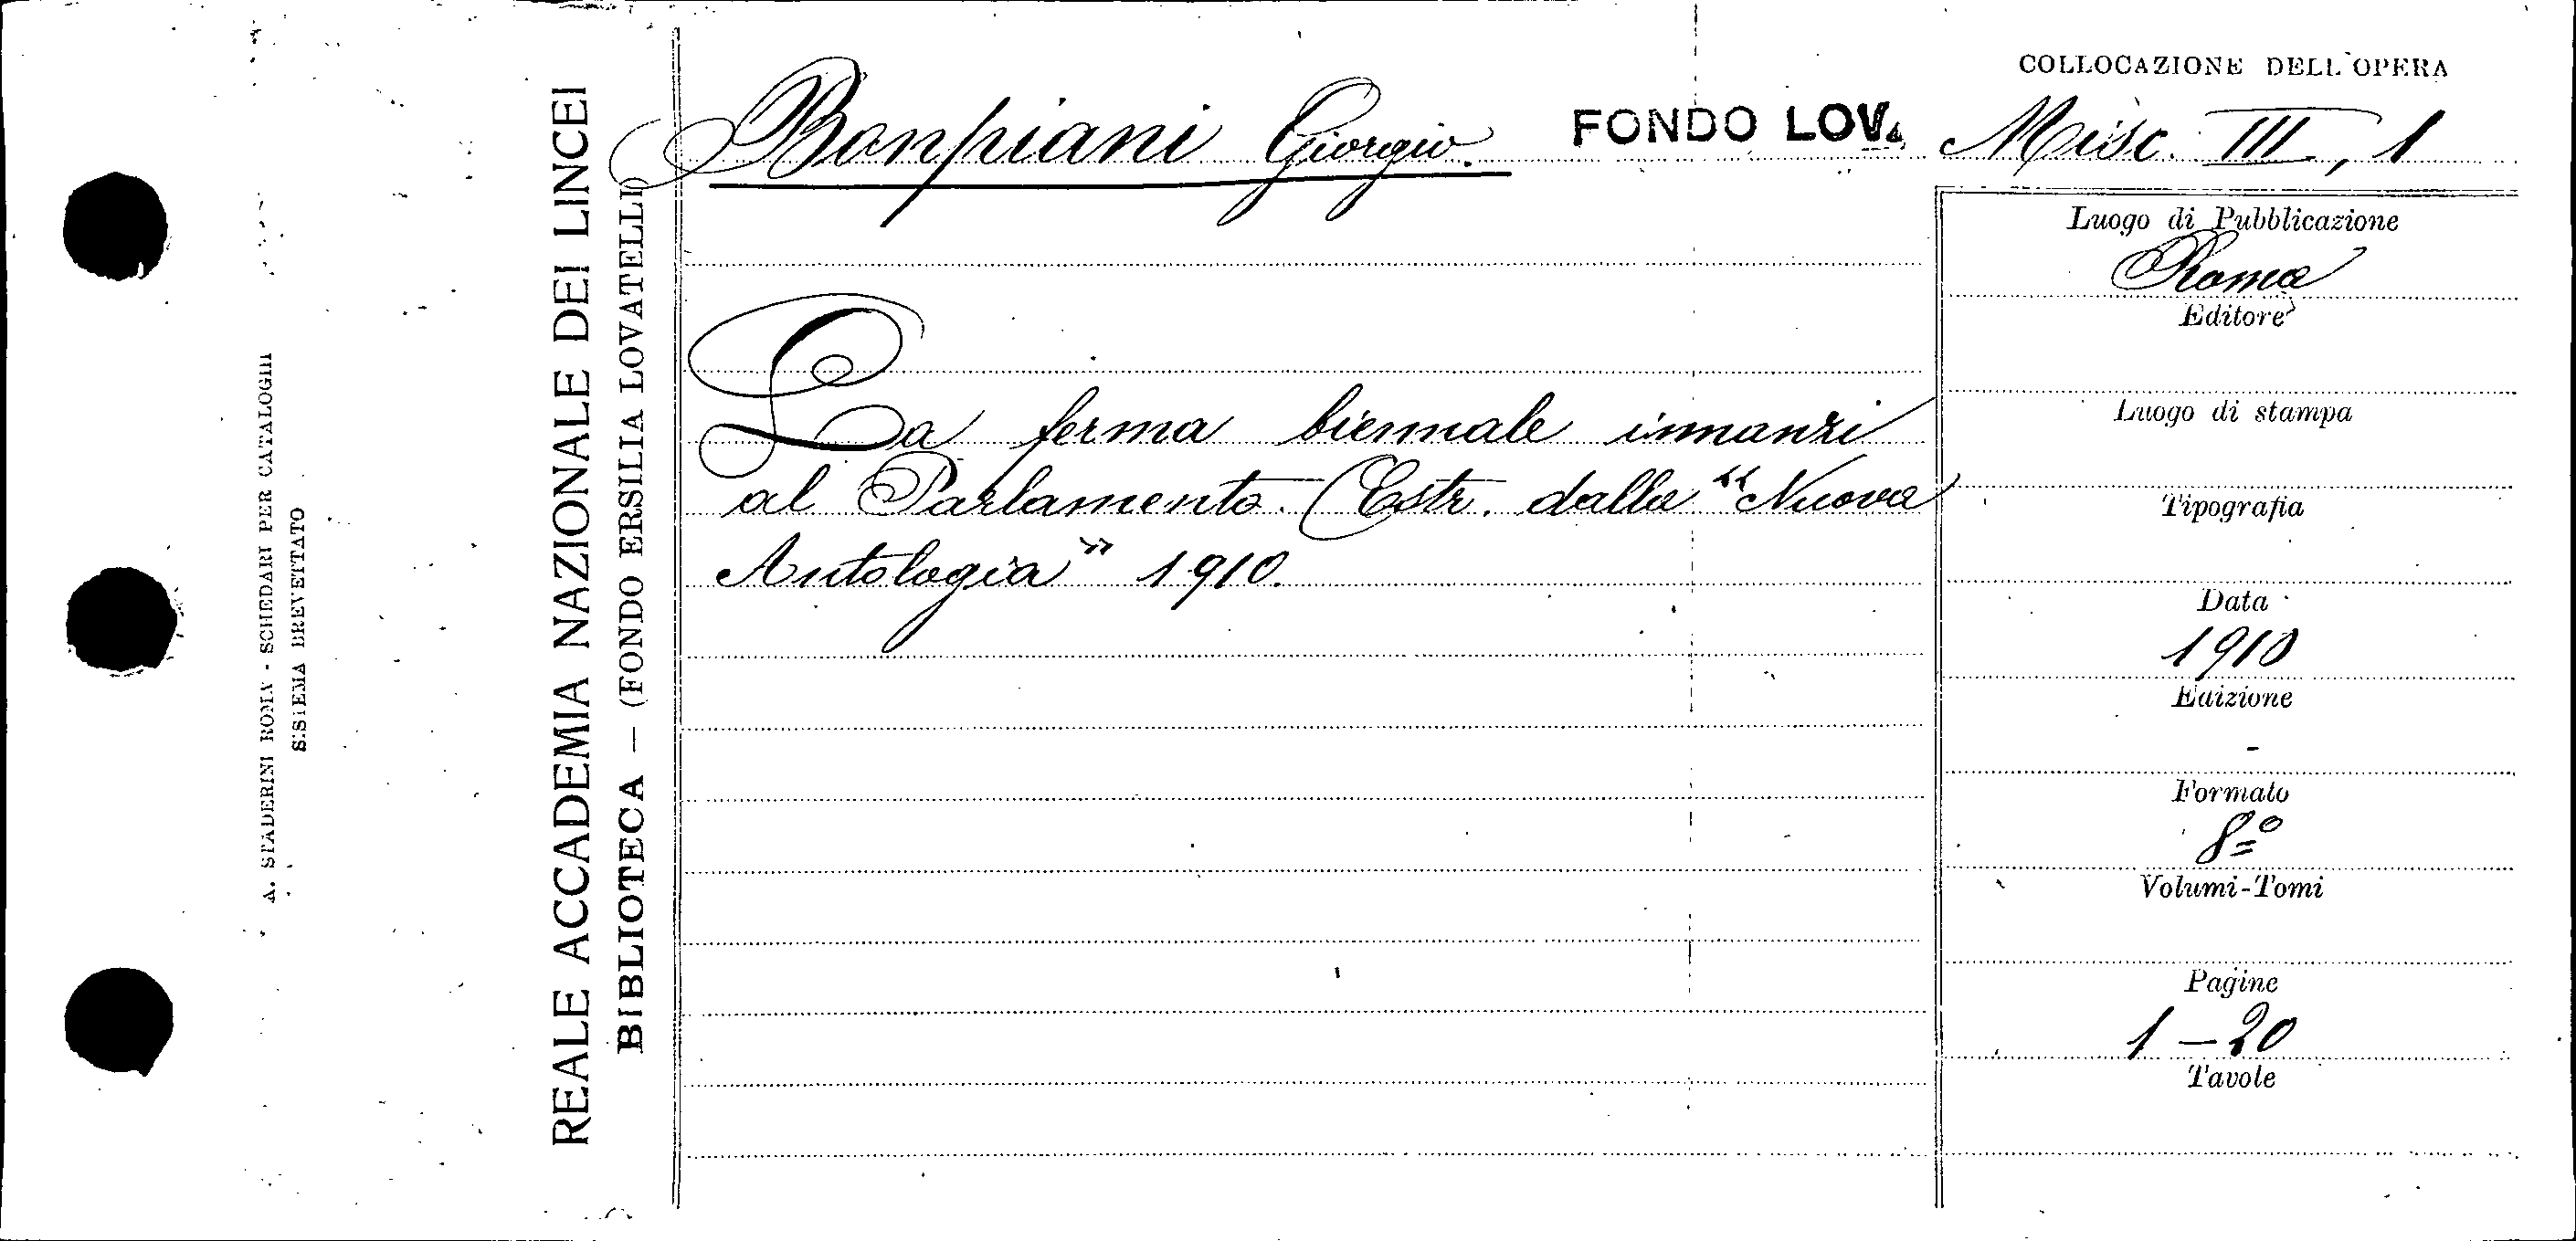 COLLOCAZIONE DELL'OPERA
Bonpiani Giorgio. FONDO LOV. Misc. III, 1
La ferma biennale innanzi
al Parlamento. (Estr. dalla "Nuova
Antologia" 1910.
Luogo di Pubblicazione
Roma
Editore
Luogo di stampa
Tipografia
Data
1910
Edizione
-
Formato
8º
Volumi-Tomi
Pagine
1 - 20
Tavole
REALE ACCADEMIA NAZIONALE DEI LINCEI
BIBLIOTECA — (FONDO ERSILIA LOVATELLI)
A. STADERINI ROMA - SCHEDARI PER CATALOGHI
SISTEMA BREVETTATO